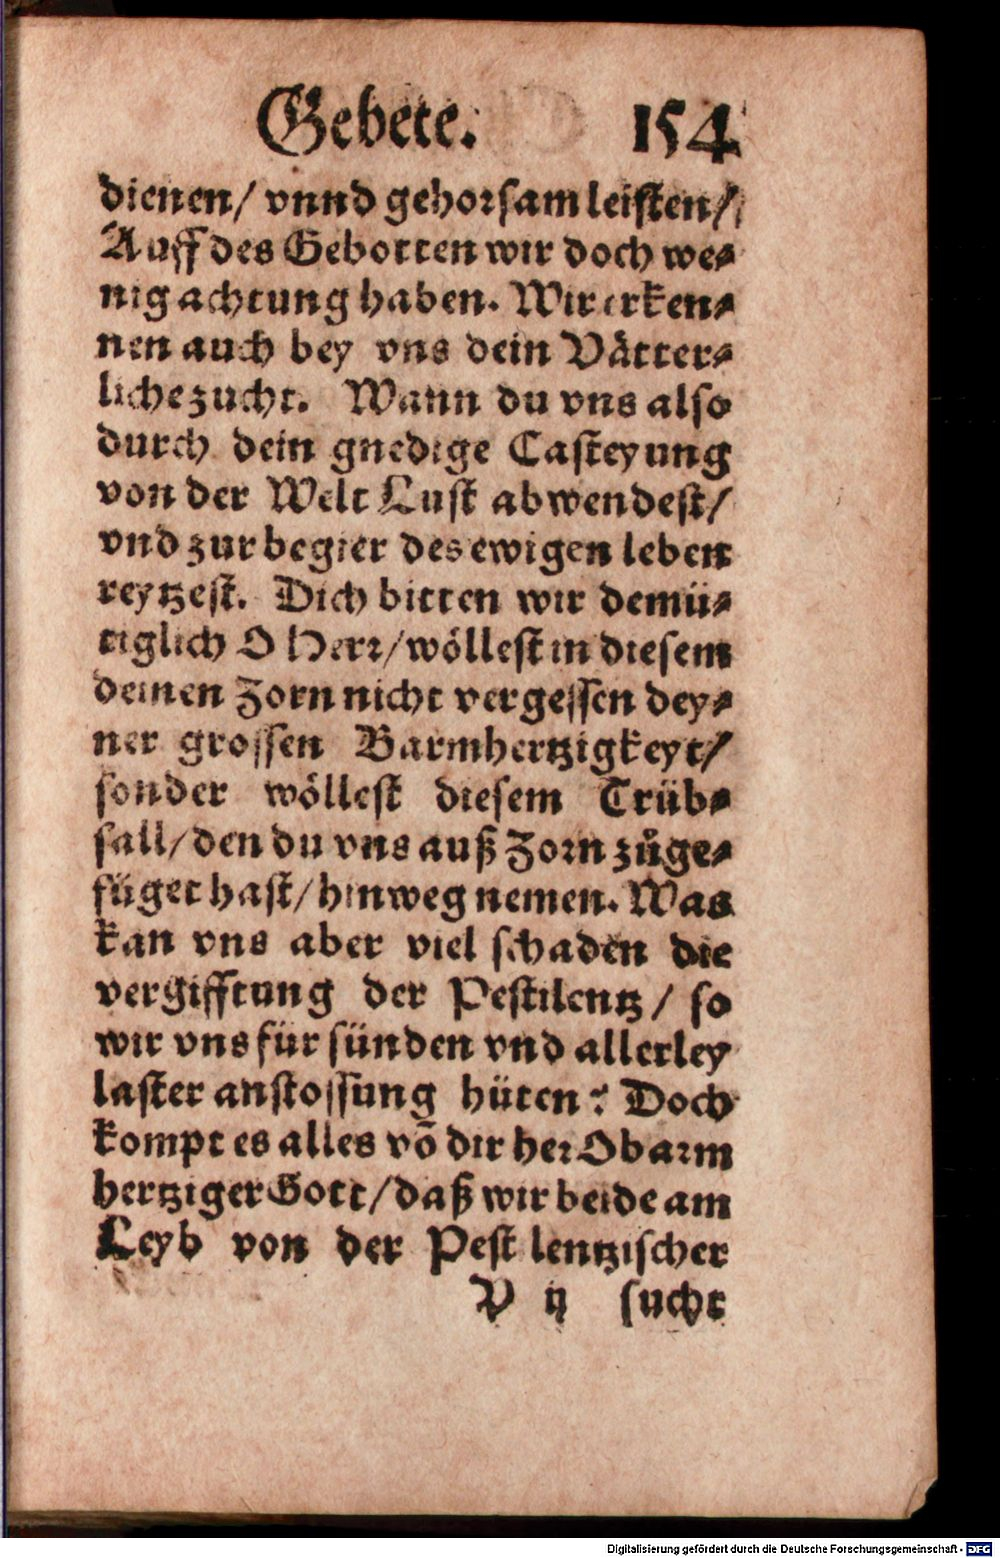 Gebete. 154
dienen/ vnnd gehorsam leisten/
Auff des Gebotten wir doch we-
nig achtung haben. Wir erken-
nen auch bey vns dein Vätter-
liche zucht. Wann du vns also
durch dein gnedige Casteyung
von der Welt Lust abwendest/
vnd zur begier des ewigen leben
reytzest. Dich bitten wir demü-
tiglich O Herr/ wöllest in diesem
deinen Zorn nicht vergessen dey-
ner grossen Barmhertzigkeyt/
sonder wöllest diesem Trüb-
sall/ den du vns auß Zorn zůge-
füget hast/ hinweg nemen. Was
kan vns aber viel schaden die
vergifftung der Pestilentz/ so
wir vns für sünden vnd allerley
laster anstossung hüten? Doch
kompt es alles võ dir her O barm
hertziger Gott/ daß wir beide am
Leyb von der Pest lentzischer
V ij sucht
Digitalisierung gefördert durch die Deutsche Forschungsgemeinschaft - DFG